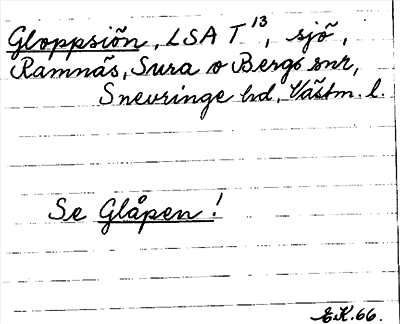 Gloppsiõn, LSA T¹³, sjõ,
Ramnäs, Sura o Bergs snr,
Snevringe hd, Västm. l.
Se Glåpen!
E.K.66.